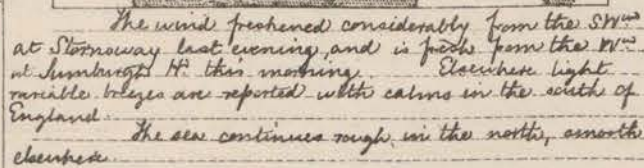 The wind freshened considerably from the SWrd
at Stornoway last evening and is fresh from the Wrd
at Sumburgh Hd. this morning. Elsewhere light
variable breezes are reported with calms in the south of
England.
The sea continues rough in the north, smooth
elsewhere.